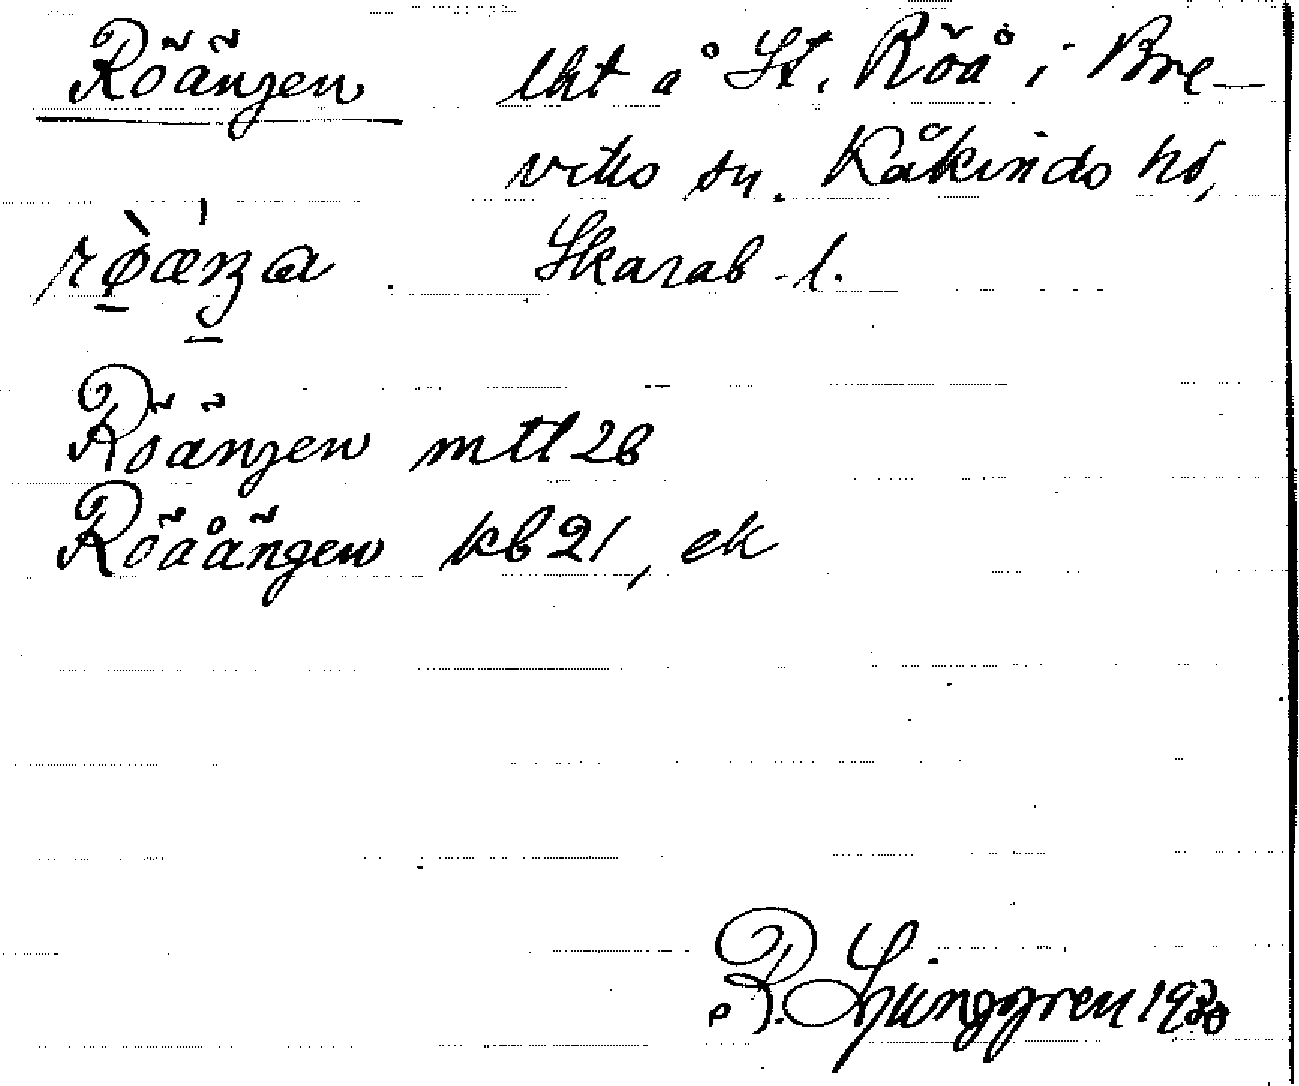 Röängen lht å St. Röå i Bre-
viks sn. Kåkinds hd,
Skarab. l.
Röängen mtl 28
Röåängen kb 21, ek
R. Ljunggren 1930